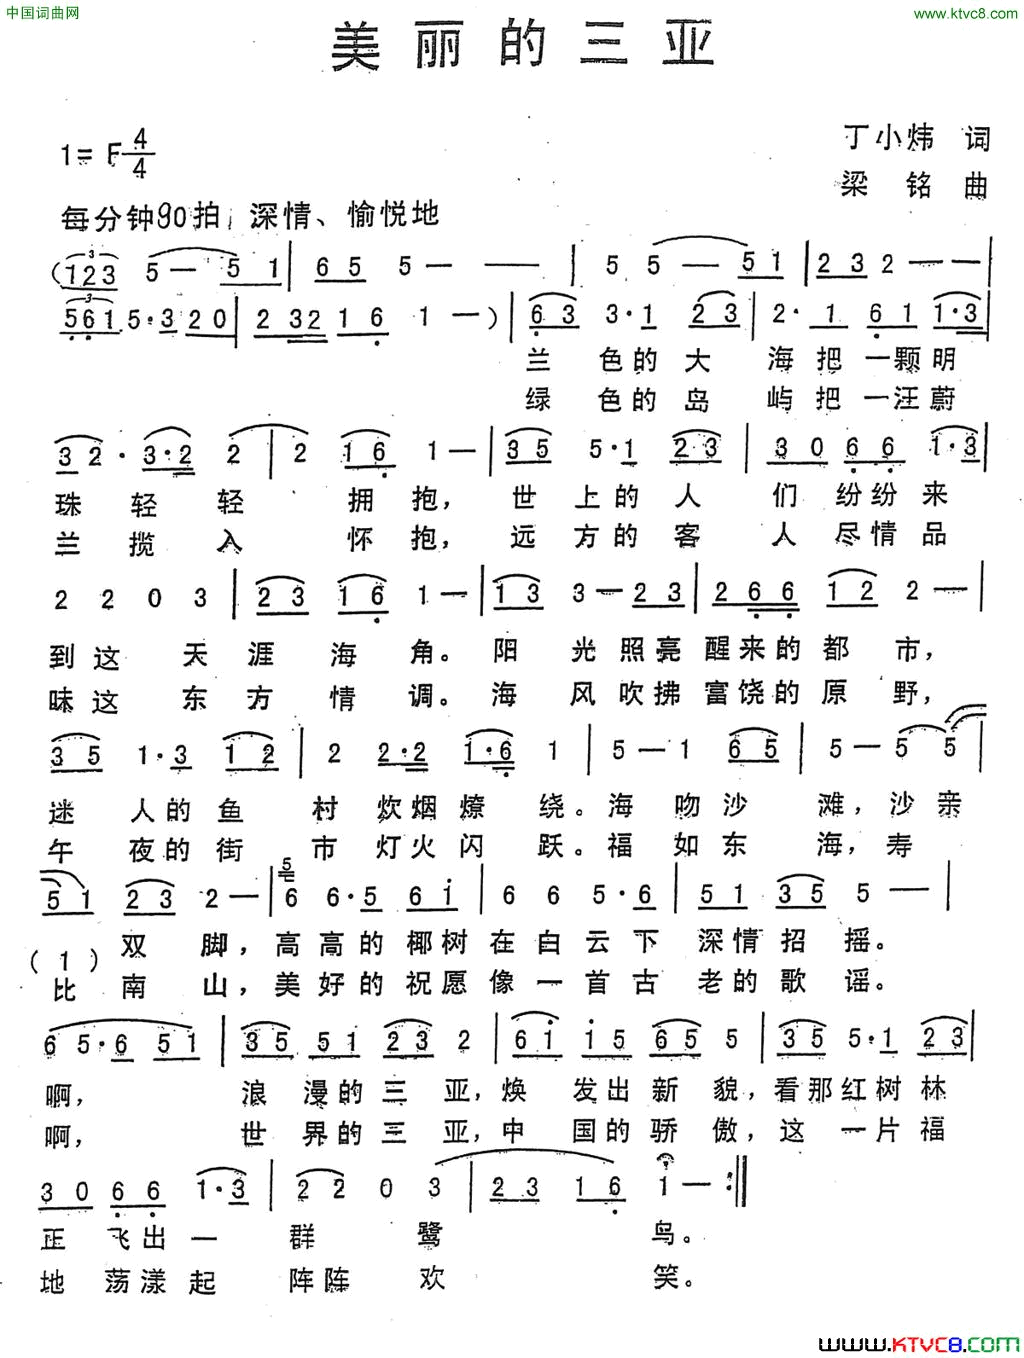 中国词曲网
www.ktvc8.com
美丽的三亚
丁小炜 词
1=F 4/4
梁 铭 曲
每分钟90拍 深情、愉悦地
(123 5— 51 | 65 5— — | 5 5— 51 | 23 2——
561 5·3 20 | 2 32 16 1—) | 63 3·1 23 | 2·1 61 1·3
兰 色的大 海把一颗明
绿 色的岛 屿把一汪蔚
32· 3·2 2 | 2 16 1— | 35 5·1 23 | 30 66 1·3
珠 轻 轻 拥 抱, 世 上的人 们 纷纷来
兰 揽 入 怀 抱, 远 方的客 人 尽情品
2 2 0 3 | 23 16 1— | 13 3—23 | 266 12 2—
到这 天 涯 海 角。阳 光照亮醒来的都 市,
味这 东 方 情 调。海 风吹拂富饶的原 野,
35 1·3 12 | 2 2·2 1·6 1 | 5—1 65 | 5—5 5
迷 人的鱼 村 炊烟燎 绕。海吻沙 滩,沙亲
午 夜的街 市 灯火闪 跃。福如东 海,寿
5
51 23 2— | 6 6·5 6i | 6 6 5·6 | 51 35 5—
双 脚,高高的椰树在白云下 深情招 摇。
(1)
比 南 山,美好的祝愿像一首古 老的歌 谣。
6 5·6 51 | 35 51 23 2 | 6i i5 65 5 | 35 5·1 23
啊, 浪 漫的三 亚,焕 发出新 貌,看那红树林
啊, 世 界的三 亚,中 国的骄 傲,这 一片福
30 66 1·3 | 22 0 3 | 23 16 1— :|
正 飞出一 群 鹭 鸟。
地 荡漾起 阵阵 欢 笑。
www.KTVC8.com